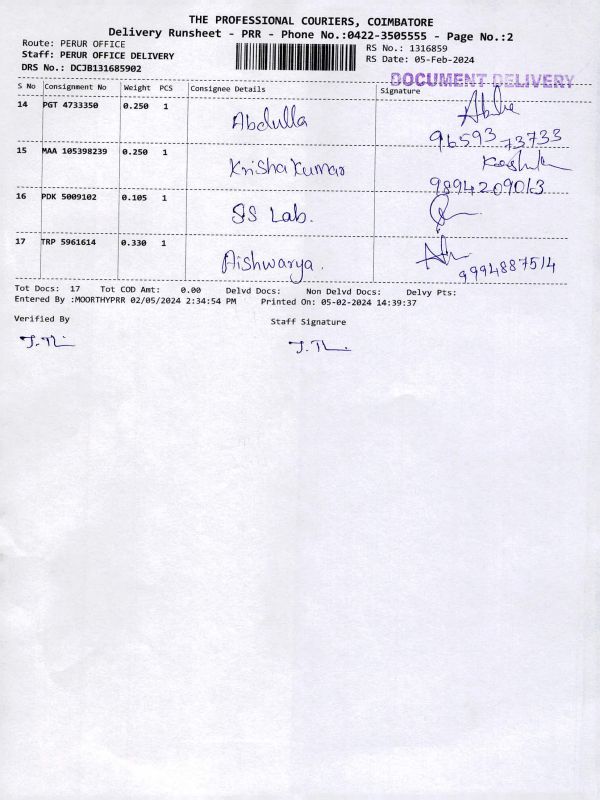 THE PROFESSIONAL COURIERS, COIMBATORE
Delivery Runsheet - PRR - Phone No.:0422-3505555 - Page No.:2
Route: PERUR OFFICE RS No.: 1316859
Staff: PERUR OFFICE DELIVERY RS Date: 05-Feb-2024
DRS No.: DCJB131685902
DOCUMENT DELIVERY
S No Consignment No Weight PCS Consignee Details Signature
14 PGT 4733350 0.250 1 Abdulla
9659373733
15 MAA 105398239 0.250 1 Krishakumar
9894209013
16 PDK 5009102 0.105 1 SJS Lab.
17 TRP 5961614 0.330 1 Aishwarya.
9994887514
Tot Docs: 17 Tot COD Amt: 0.00 Delvd Docs: Non Delvd Docs: Delvy Pts:
Entered By :MOORTHYPRR 02/05/2024 2:34:54 PM Printed On: 05-02-2024 14:39:37
Verified By Staff Signature